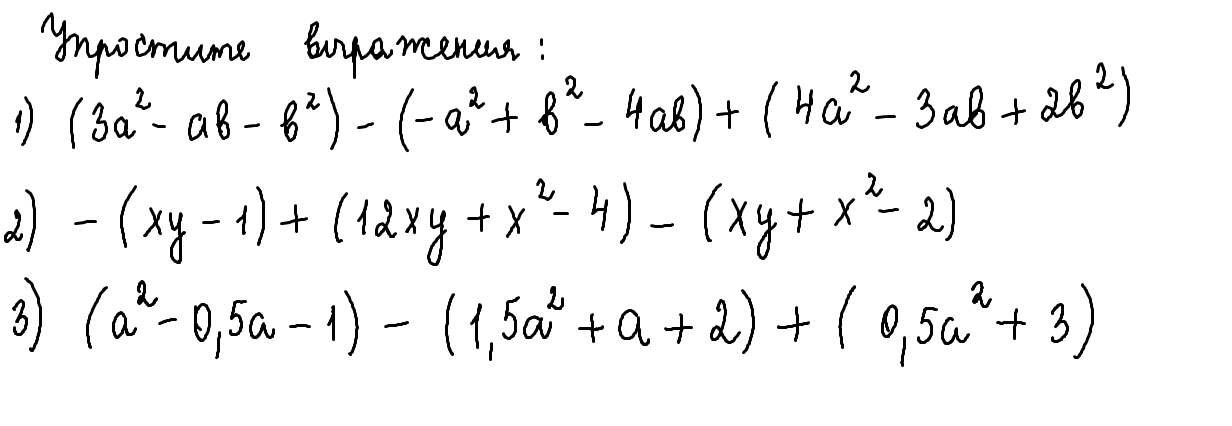 Упростите выражения:
1) (3a² - ab - b²) - (-a² + b² - 4ab) + (4a² - 3ab + 2b²)
2) - (xy - 1) + (12xy + x² - 4) - (xy + x² - 2)
3) (a² - 0,5a - 1) - (1,5a² + a + 2) + (0,5a² + 3)